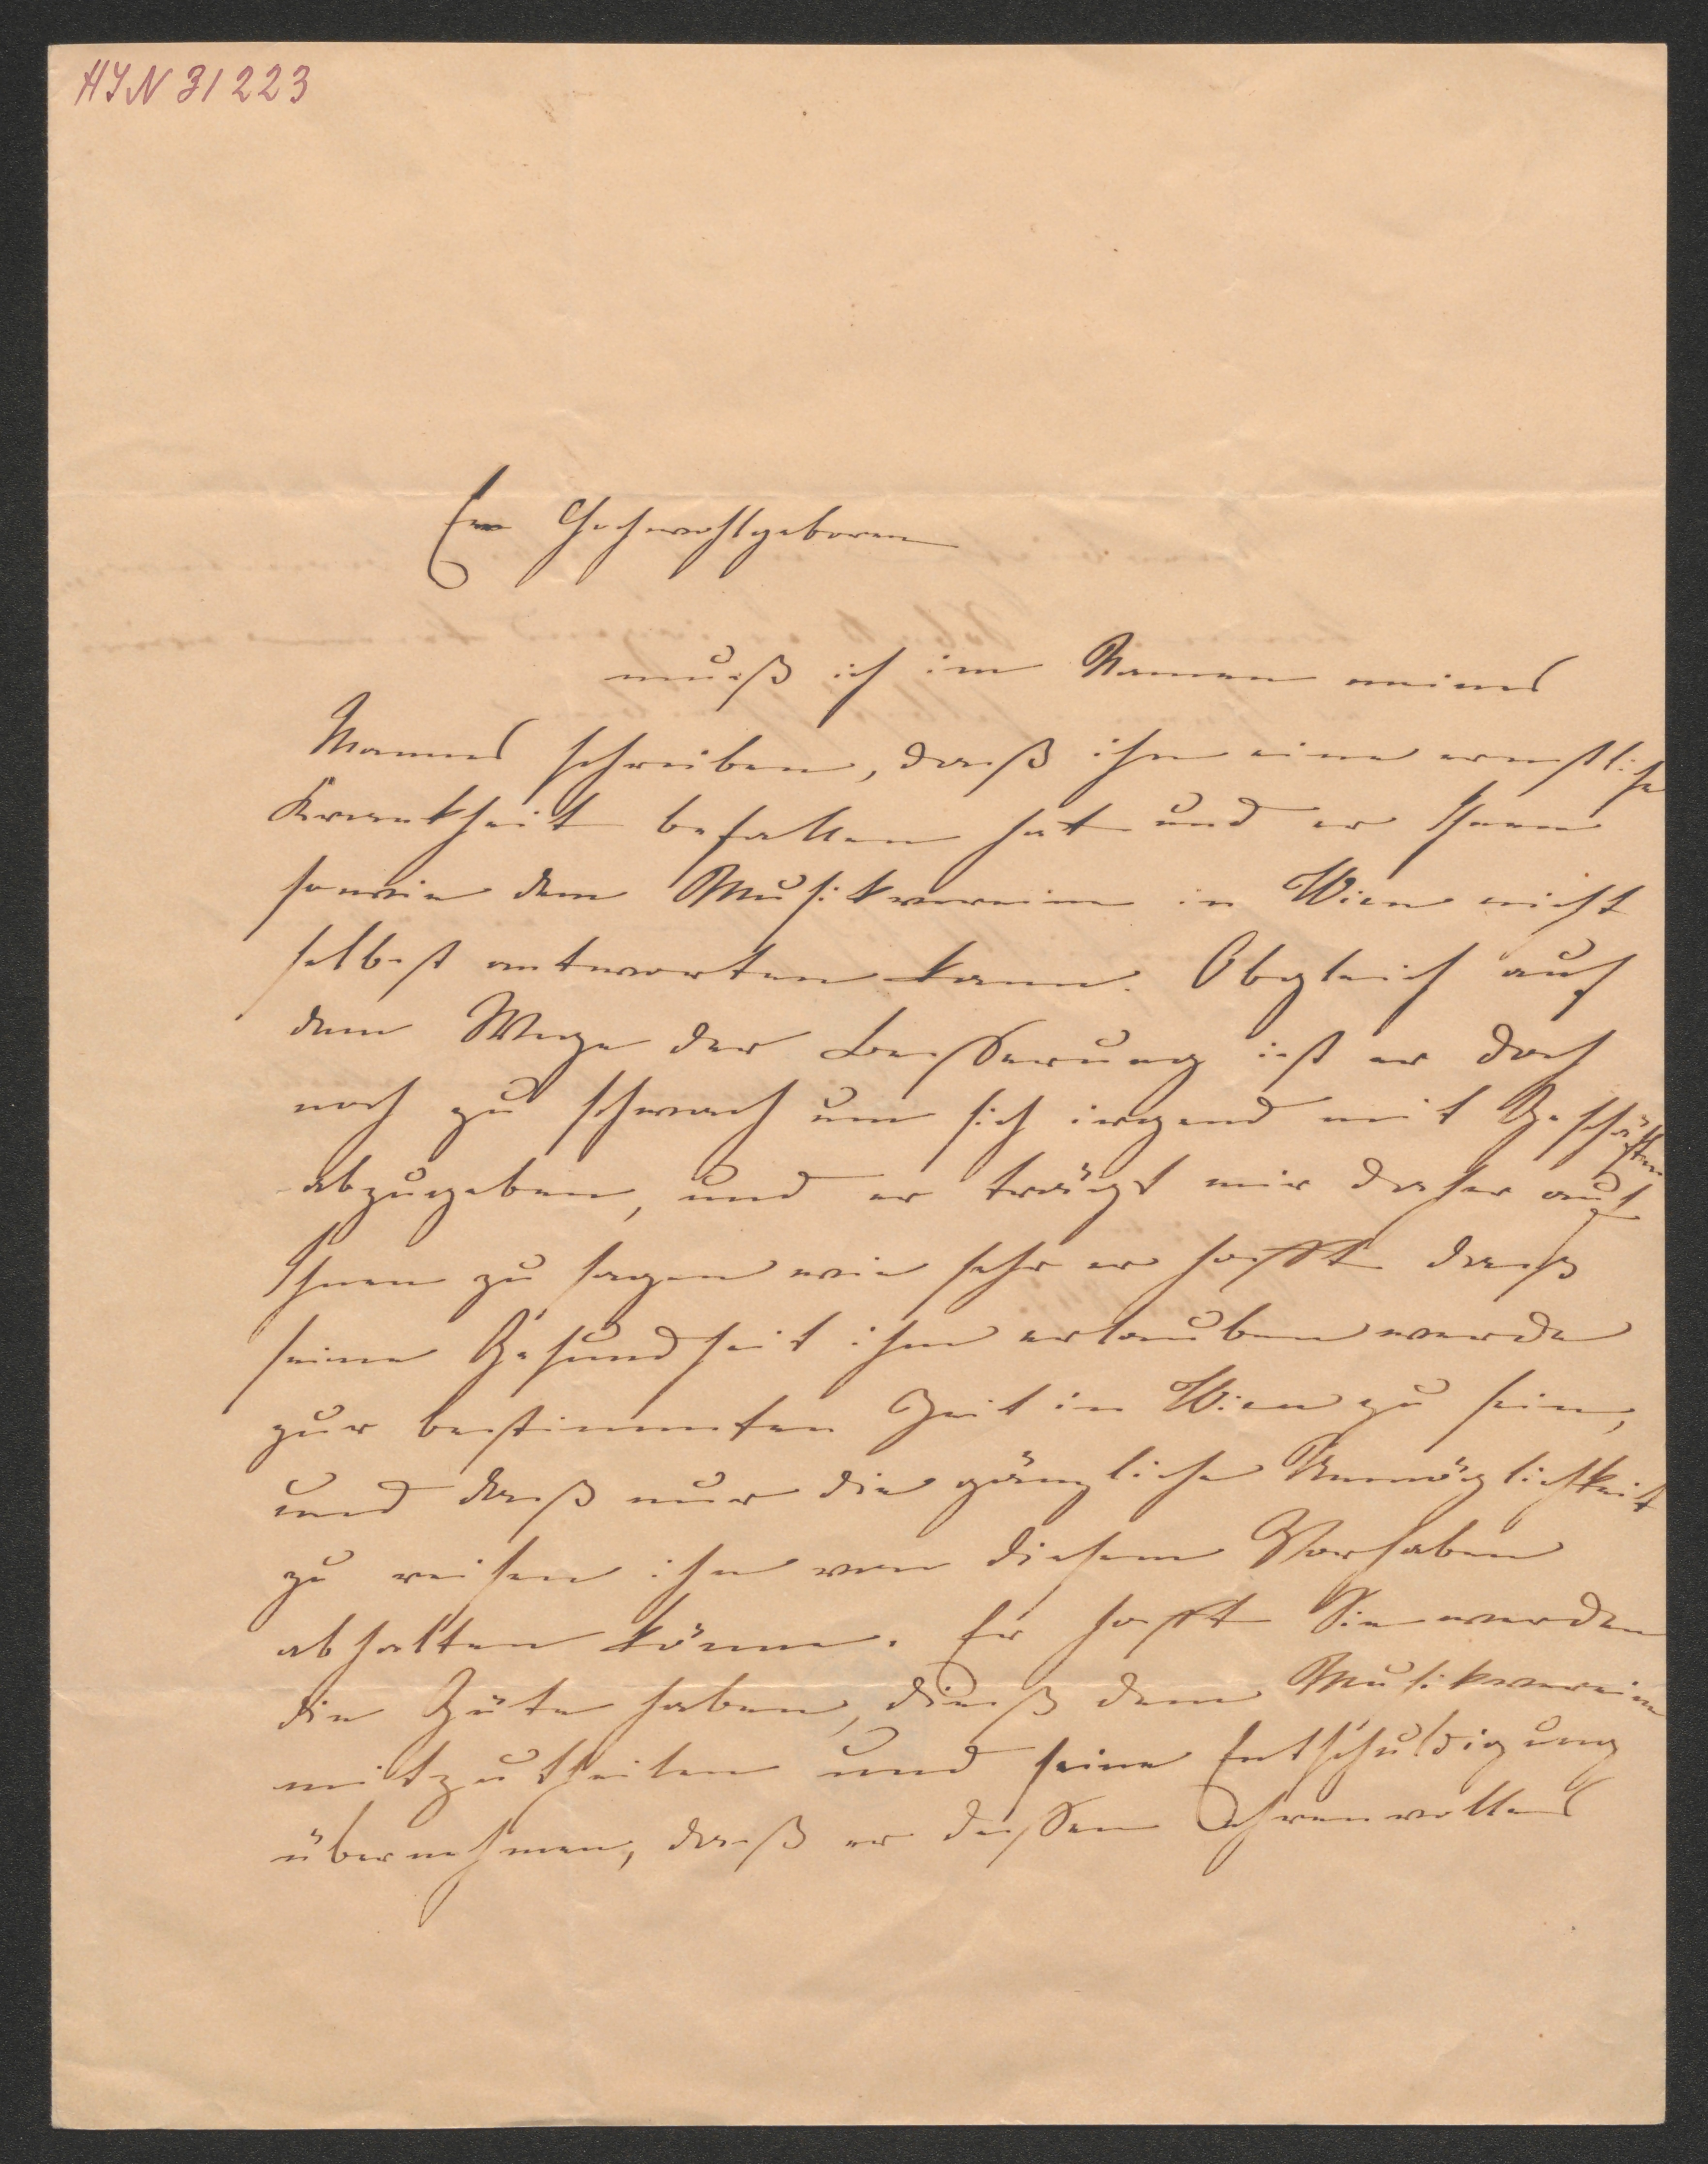 HIN 31223
Ew Hochwohlgeboren
muß ich im Namen meines
Mannes schreiben, daß ihn eine ernstliche
Krankheit befallen hat und er Ihnen
sowie dem Musikvereine in Wien nicht
selbst antworten kann. Obgleich auf
dem Wege der Besserung ist er doch
noch zu schwach um sich irgend mit Geschäften
abzugeben, und er trägt mir daher auf
Ihnen zu sagen wie sehr er hofft daß
seine Gesundheit ihm erlauben werde
zur bestimmten Zeit in Wien zu sein,
und daß nur die gänzliche Unmöglichkeit
zu reisen ihn von diesem Vorhaben
abhalten könne. Er hofft Sie werden
die Güte haben, dieß dem Musikvereine
mitzutheilen und seine Entschuldigung
übernehmen, daß er dessen ehrenvolles